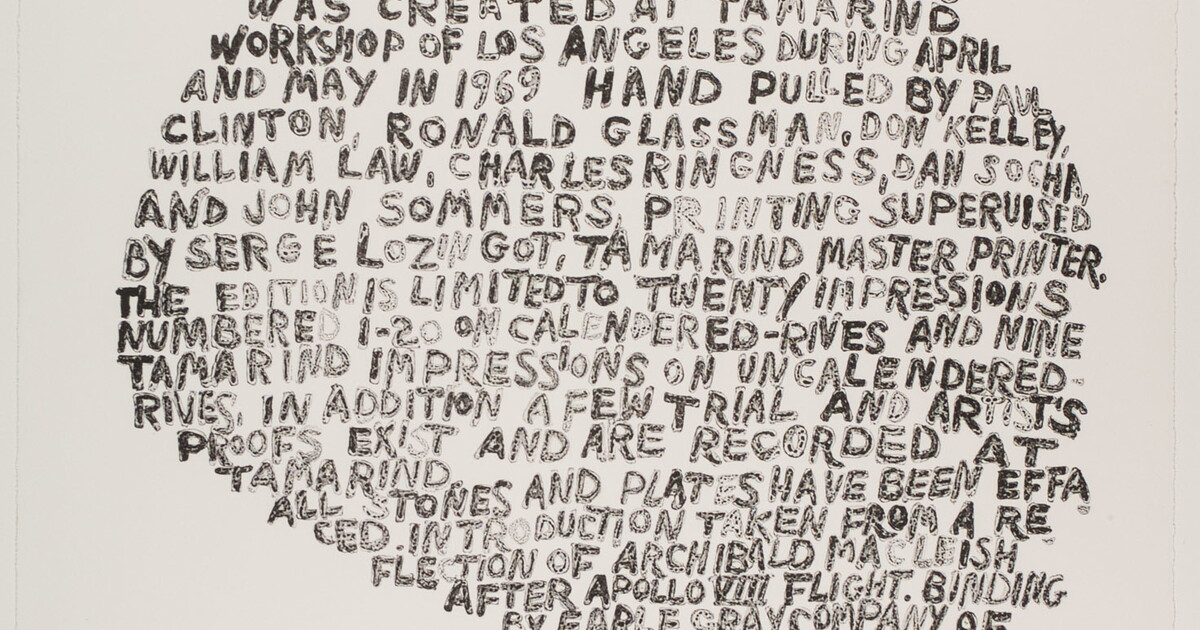 WAS CREATED AT TAMARIND
WORKSHOP OF LOS ANGELES DURING APRIL
AND MAY IN 1969 HAND PULLED BY PAUL
CLINTON, RONALD GLASSMAN, DON KELLEY,
WILLIAM LAW, CHARLES RINGNESS, DAN SOCHA,
AND JOHN SOMMERS. PRINTING SUPERUISED
BY SERGE LOZINGOT, TAMARIND MASTER PRINTER.
THE EDITION IS LIMITED TO TWENTY IMPRESSIONS
NUMBERED 1-20 ON CALENDERED-RIVES AND NINE
TAMARIND IMPRESSIONS ON UNCALENDERED-
RIVES, IN ADDITION A FEW TRIAL AND ARTIST'S
PROOFS EXIST AND ARE RECORDED AT
TAMARIND.
ALL STONES AND PLATES HAVE BEEN EFFA
CED. INTRODUCTION TAKEN FROM A RE
FLECTION OF ARCHIBALD MACLEISH
AFTER APOLLO VIII FLIGHT. BINDING
BY EARLE GRAY COMPANY OF